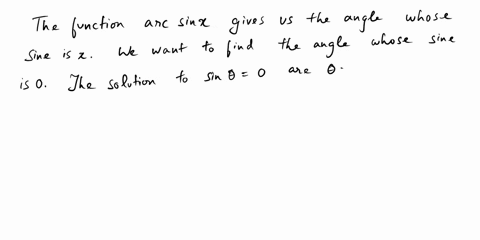 The function arc sinx gives us the angle whose
sine is x. We want to find the angle whose sine
is 0. The solution to sin θ = 0 are θ.